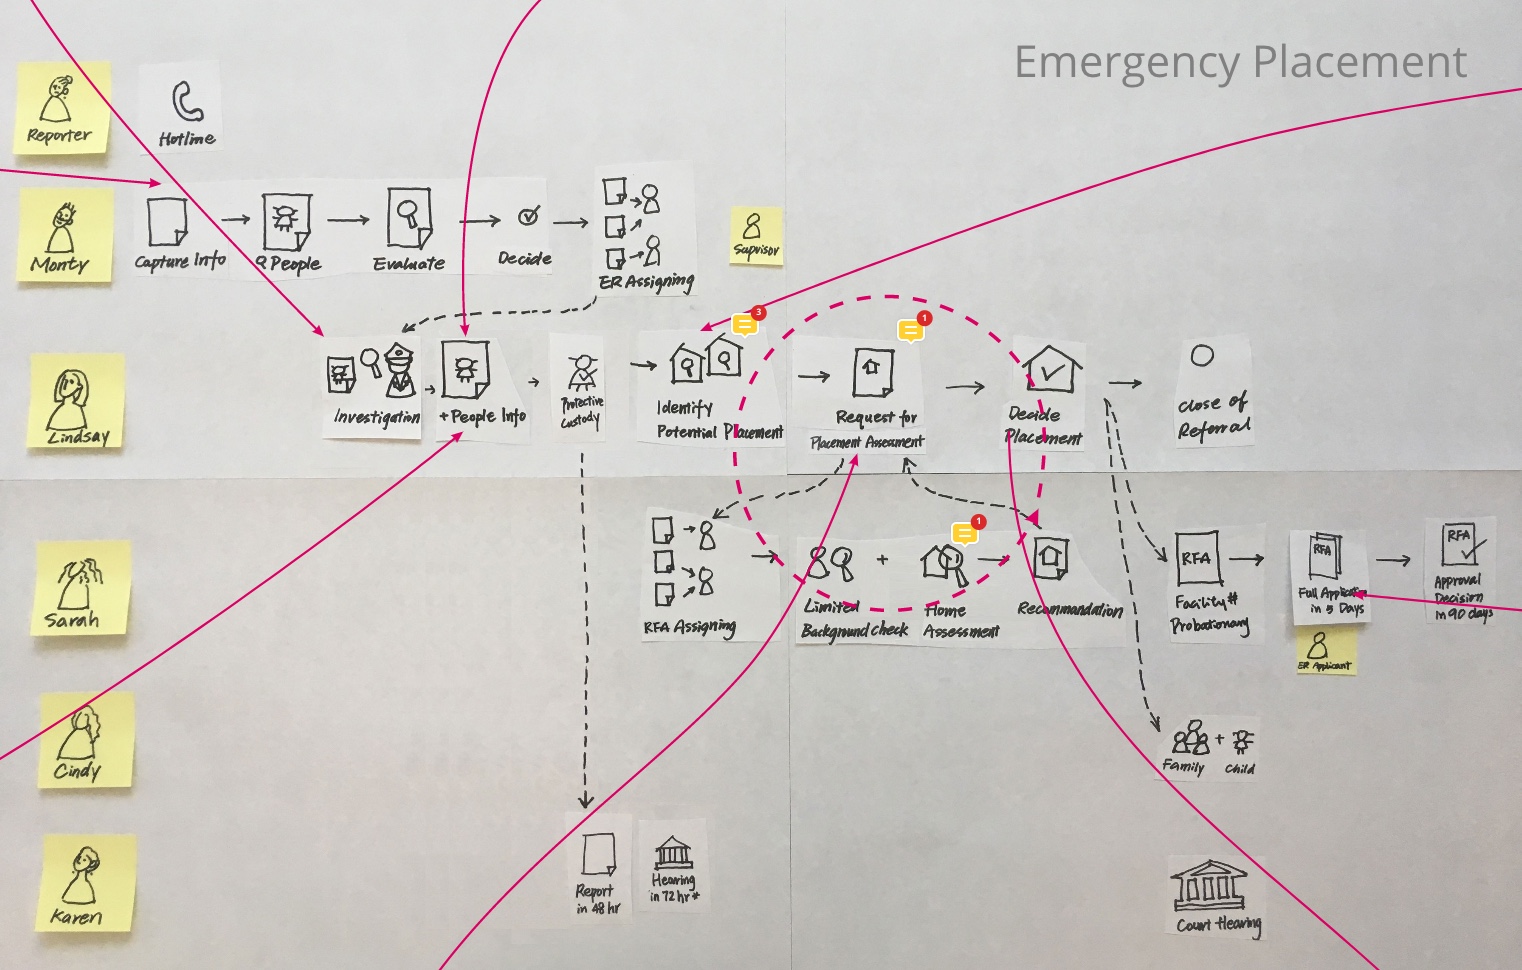 Emergency Placement
Reporter
Hotline
Monty
Capture Info
? People
Evaluate
Decide
ER Assigning
Supvisor
3
1
Lindsay
Investigation
+ People Info
Protective
Custody
Identify
Potential Placement
Request for
Placement Assesment
Decide
Placement
Close of
Referral
Sarah
RFA Assigning
Limited
Background check
+
1
Home
Assessment
Recommandation
RFA
Facility #
Probationary
RFA
Full Applicatio
in 5 Days
ER Applicant
RFA
Approval
Decision
in 90 days
Cindy
+
Family
Child
Karen
Report
in 48 hr
Hearing
in 72 hr *
Court Hearing